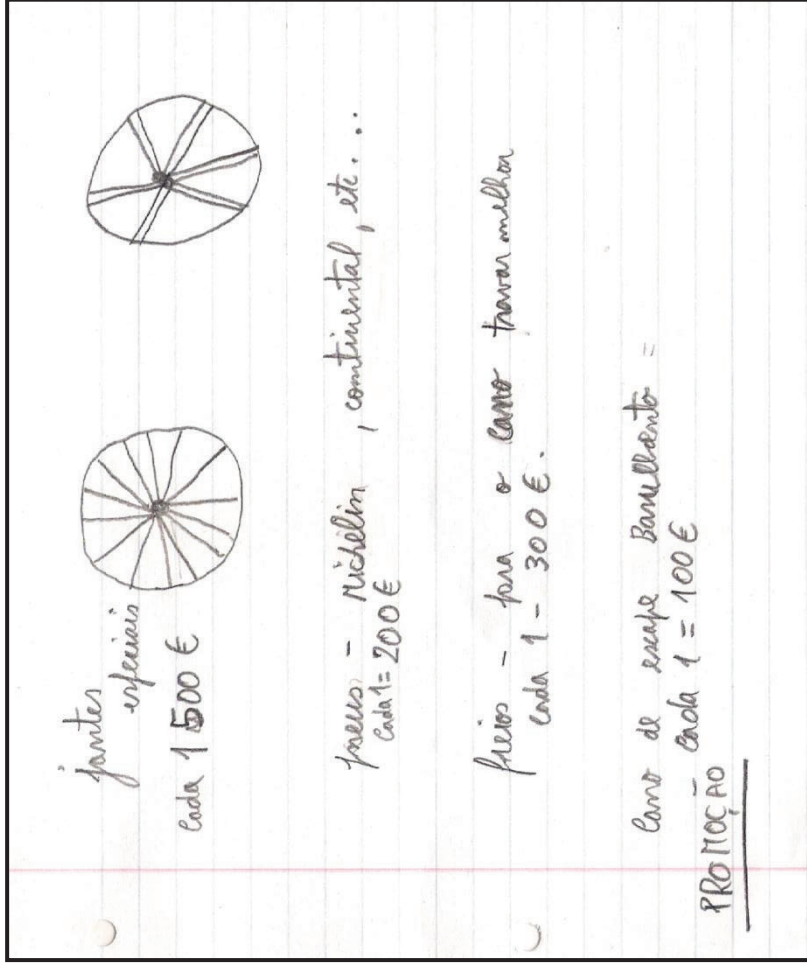 jantes
especiais
cada 1 500 €
pneus - Michelin , continental, etc...
Cada 1= 200€
freios - para o carro travar melhor
cada 1 - 300 €.
Cano de escape Barulhento =
Cada 1 = 100 €
PROMOÇÃO